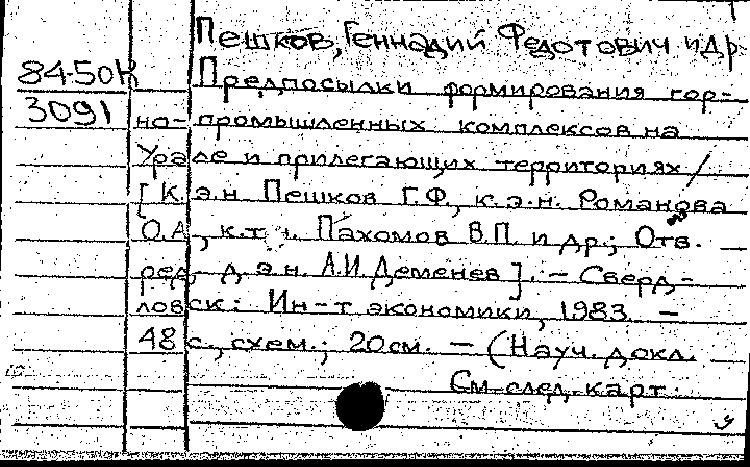 Пешков, Геннадий Федотович и др.
84-50К
Предпосылки формирования гор-
3091
но-промышленных комплексов на
Урале и прилегающих территориях /
[К.э.н. Пешков Г.Ф., к.э.н. Романова
О.А., к.т.н. Пахомов В.П. и др.; Отв.
ред. д.э.н. А.И. Деменев]. - Сверд-
ловск: Ин-т экономики, 1983. -
48 с., схем.; 20 см. - (Науч. докл.
См. след. карт.